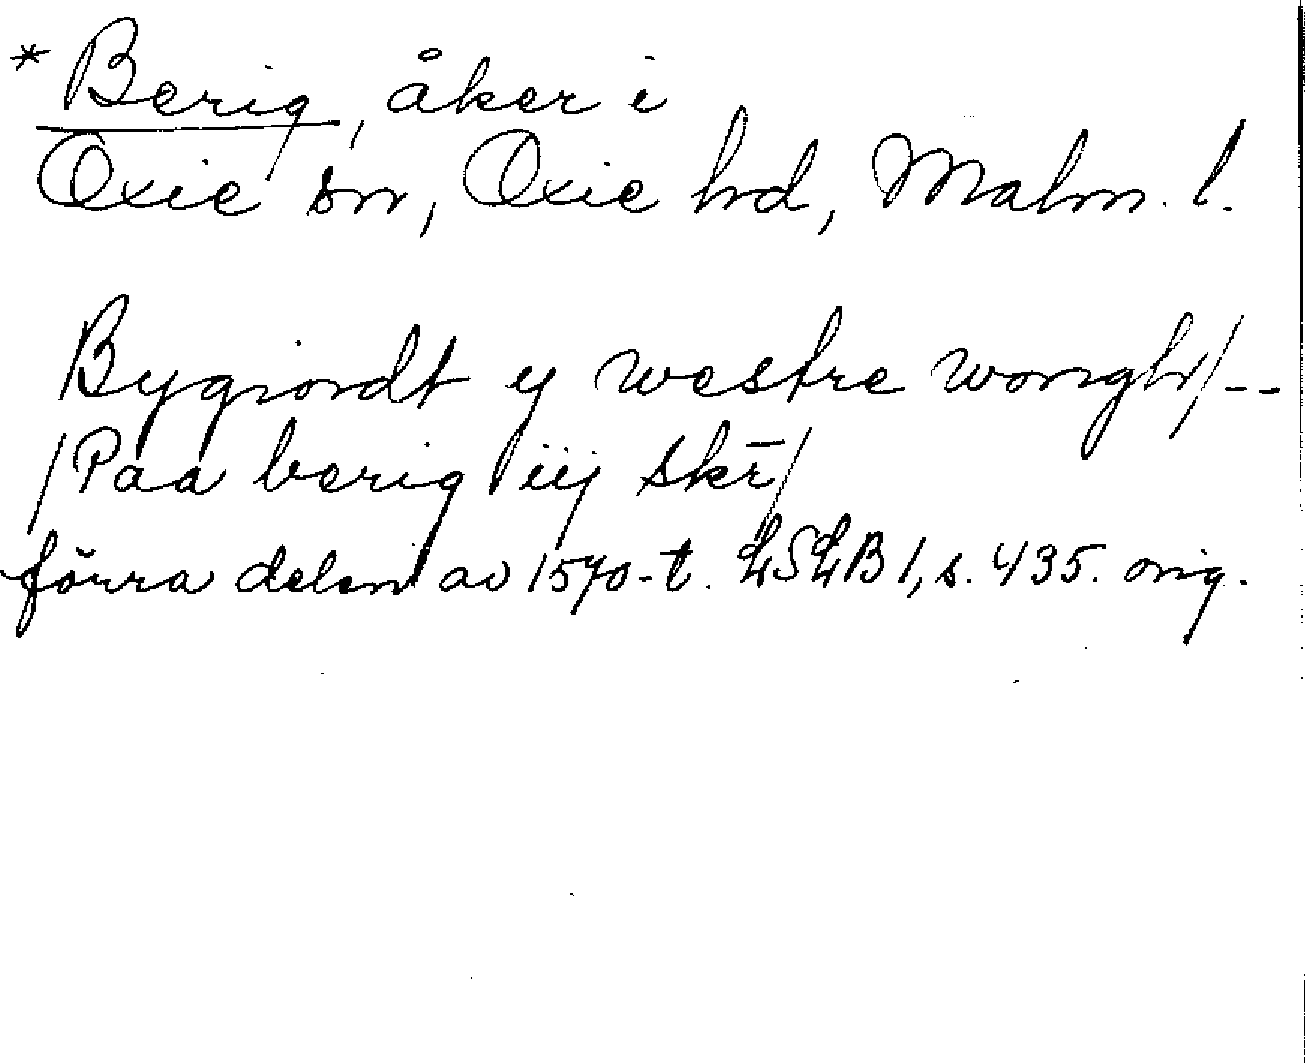 *Berig, åker i
Oxie sn, Oxie hd, Malm. l.
Bygiordt y westre wongh/--
/Paa berig iij skr̄/
förra delen av 1570-t. LSLB 1, s. 435. orig.